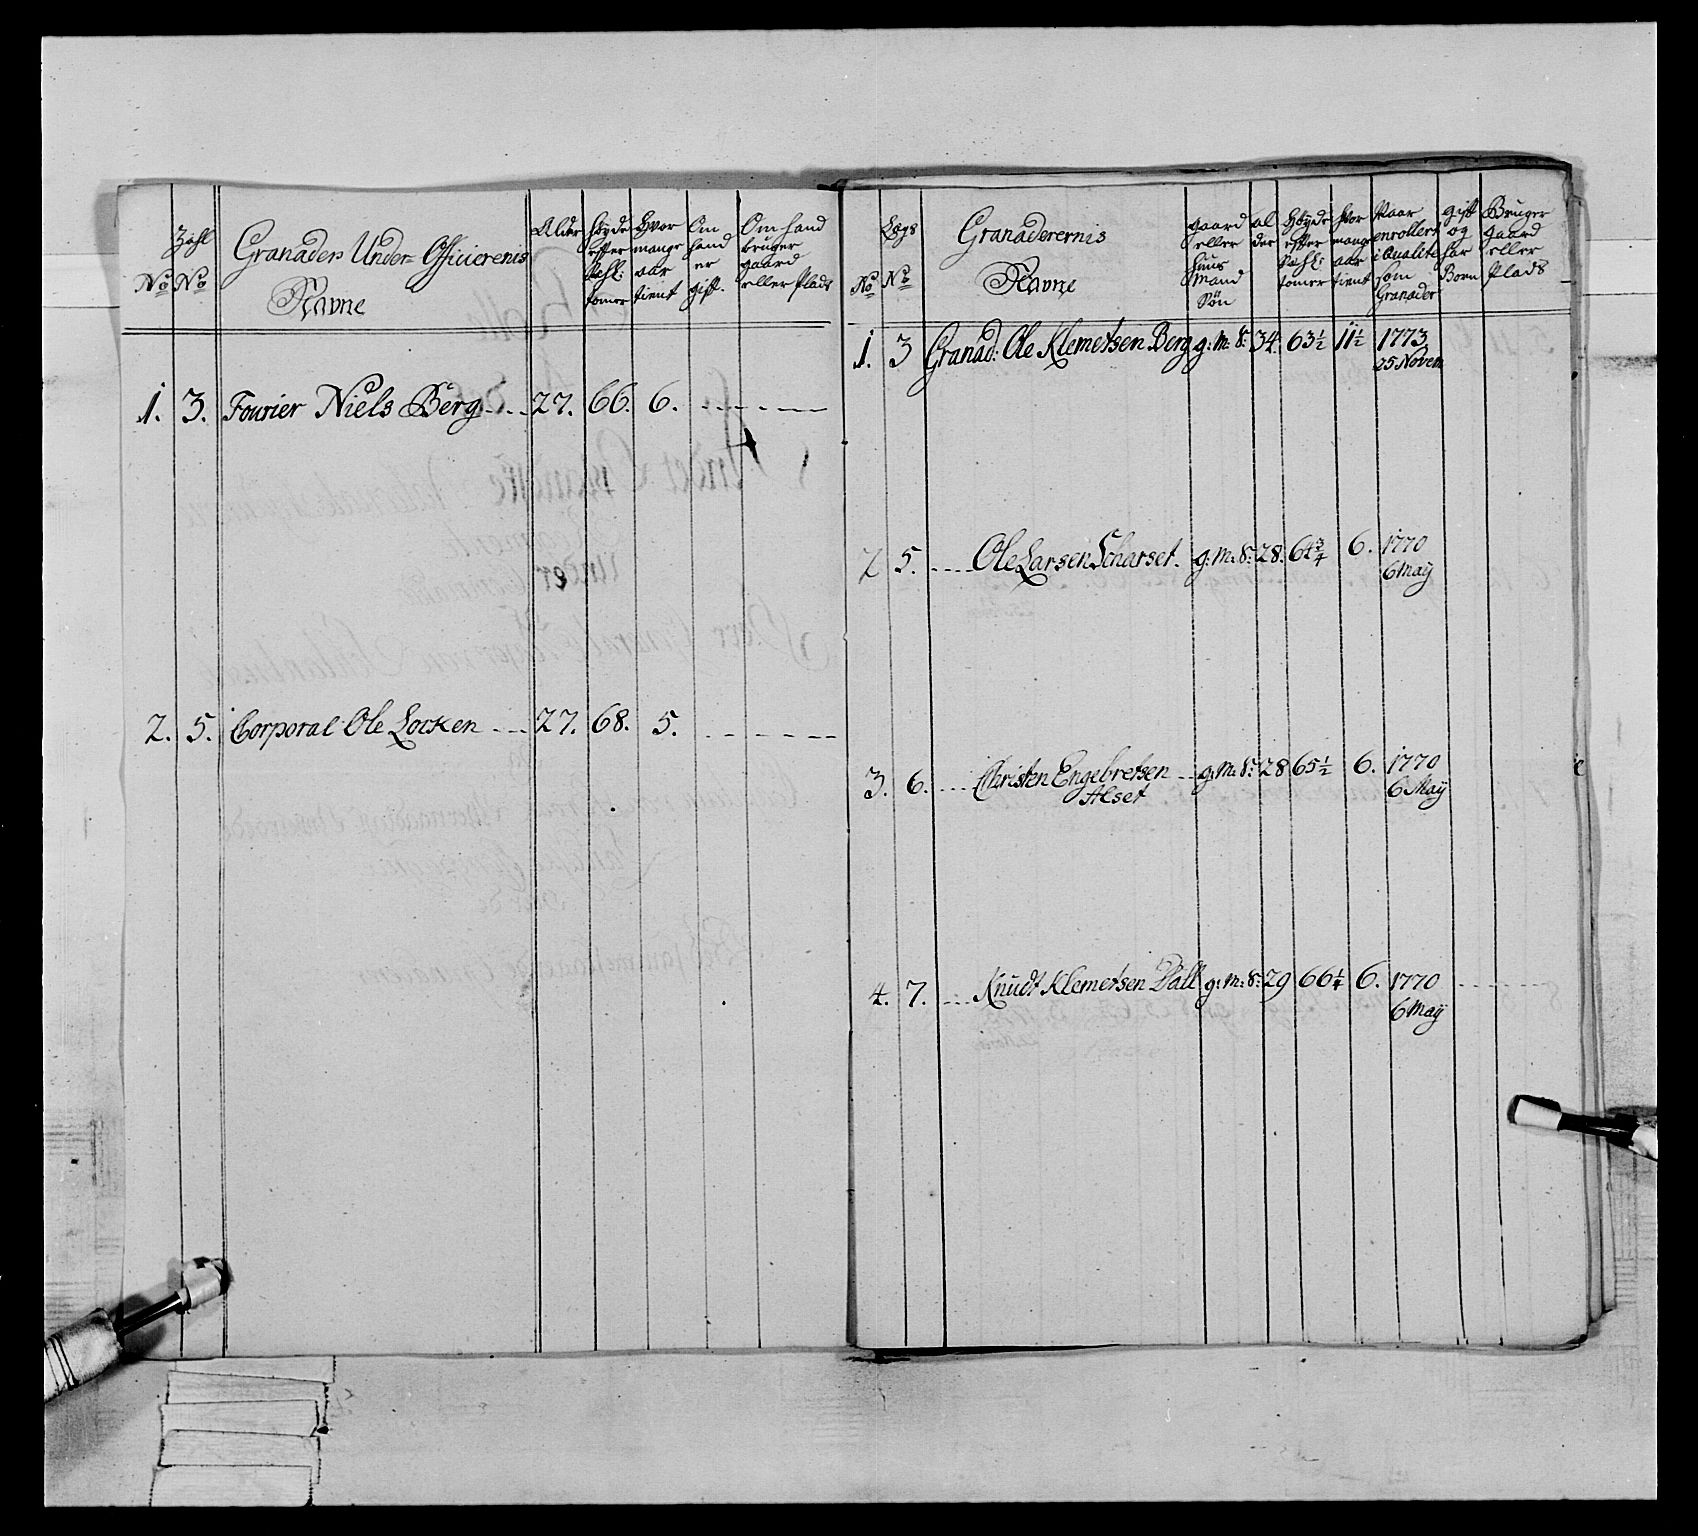 No
Zahl No
Granader Under-Officierenis
Navne
Alder
høyde efter Pahl: tomer
Hvor mange aar tient
Om hand er gift.
Om hand bruger gaard eller Plads
1. 3. Fourier Niels Berg 27. 66. 6.
2. 5. Corporal Ole Locken 27. 68. 5.
No
Lægs No
Granaderernis
Navne
gaard eller huus Mand Søn
alder
Høyde efter Pahl: tomer
hvor mange aar tient
Naar enrollert i Qualite som Granader
gift og har Born
Bruger gaard eller Plads
1. 3 Granad: Ole Klemetsen Berg g: m: s: 34. 63½ 11½ 1773
25 Novem
2 5. Ole Larsen Scharset. g: m: s: 28. 64¾ 6. 1770
6 Maÿ
3. 6. Christen Engebretsen g: m: s: 28 65½ 6. 1770
Alset 6 Maÿ
4. 7. Knudt Klemetsen Dall g: m: s: 29 66¼ 6. 1770
6 Maÿ